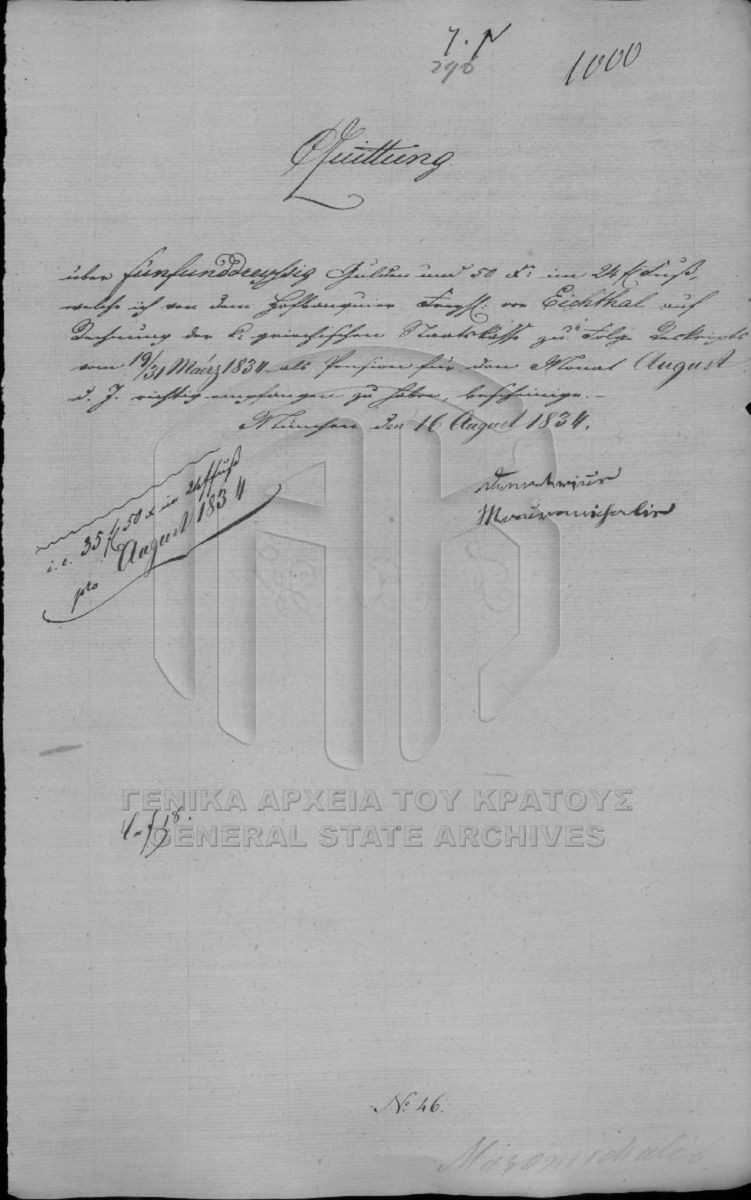 290
1000
Quittung
über fünfunddreyssig Gulden und 50 x: im 24 f Fuß,
welche ich von dem Hofbanquier Freyh: von Eichthal auf
Rechnung der k: griechischen Staatskasse zu Folge Reskripts
vom 19/31 März 1834 als Pension für den Monat August
d. J. richtig empfangen zu haben, bescheinige. –
München den 16 August 1834.
Demetrius
Mauromichalis
i. e. 35 f 50 x im 24 f fuß
pro August 1834
ΓΕΝΙΚΑ ΑΡΧΕΙΑ ΤΟΥ ΚΡΑΤΟΥΣ
GENERAL STATE ARCHIVES
No. 46.
Mavromichalis